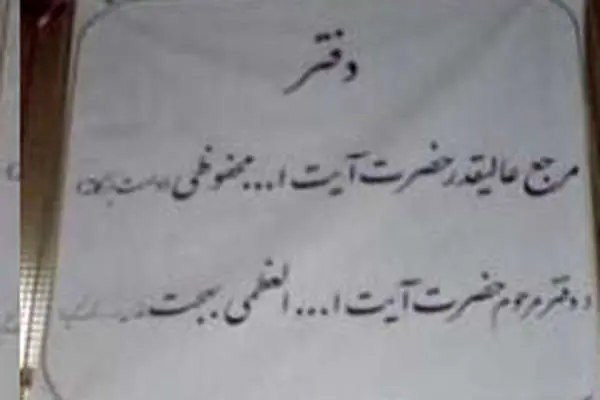 دفتر
مرجع عالیقدر حضرت آیت ا... محفوظی (دامت برکاته)
و دفتر مرحوم حضرت آیت ا... العظمی بهجت